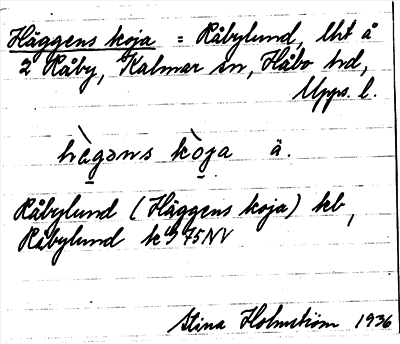 Häggens koja = Råbylund, lht å
2 Råby, Kalmar sn, Håbo hrd,
Upps. l.
hägəns kòja ä.
Råbylund (Häggens koja) kb,
Råbylund k 75NV
Stina Holmström 1936